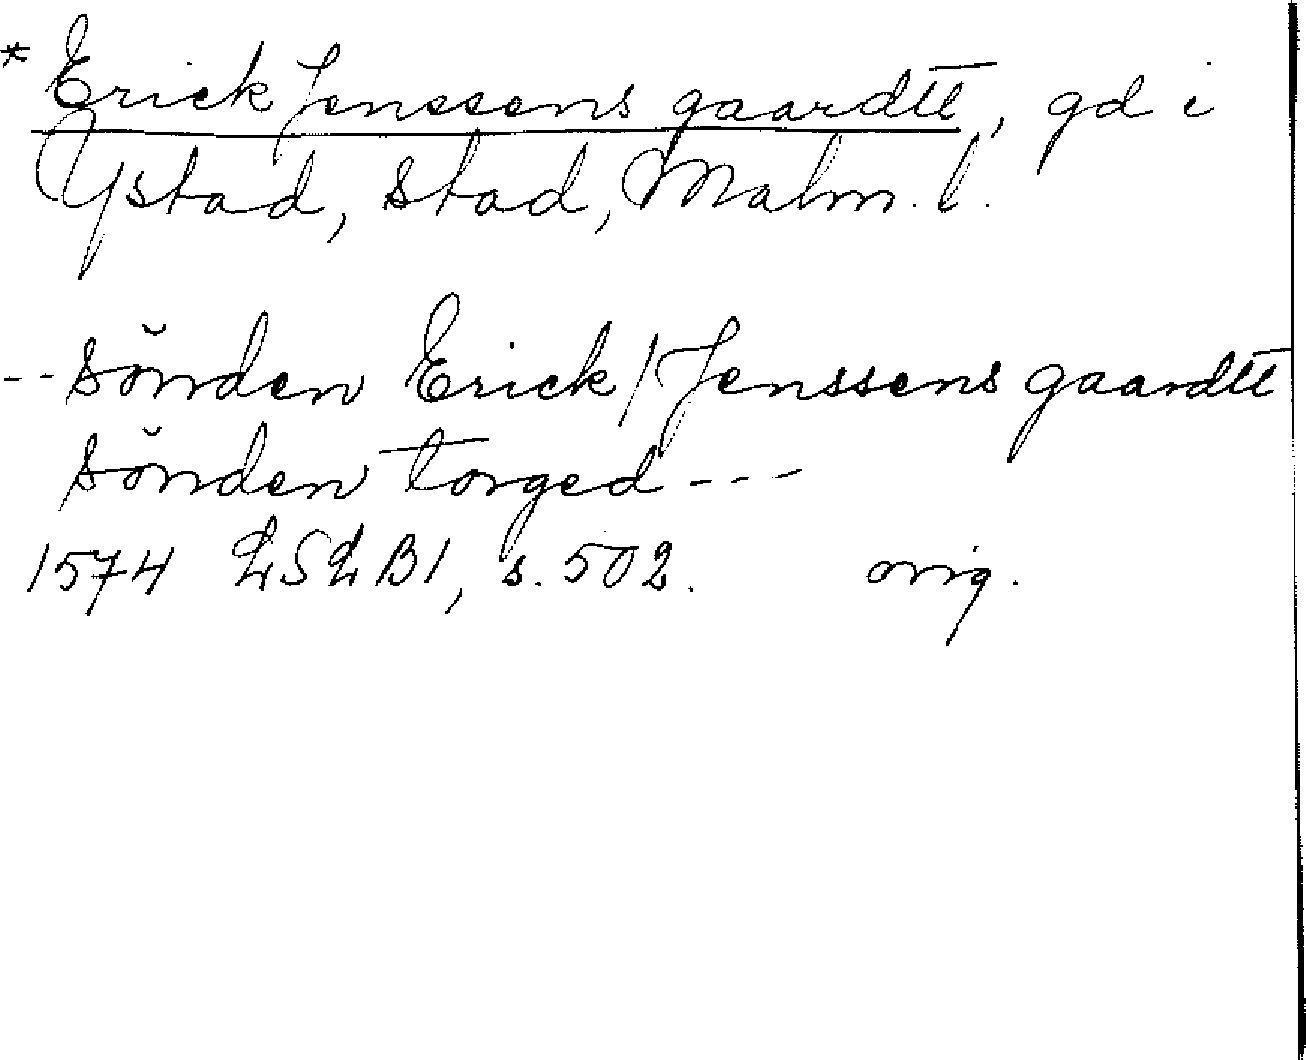 * Erick Jenssens gaardtt, gd i
Ystad, stad, Malm. l.
-- sŏnden Erick / Jenssens gaardtt
sŏnden torged ---
1574 LSLB1, s. 502. orig.